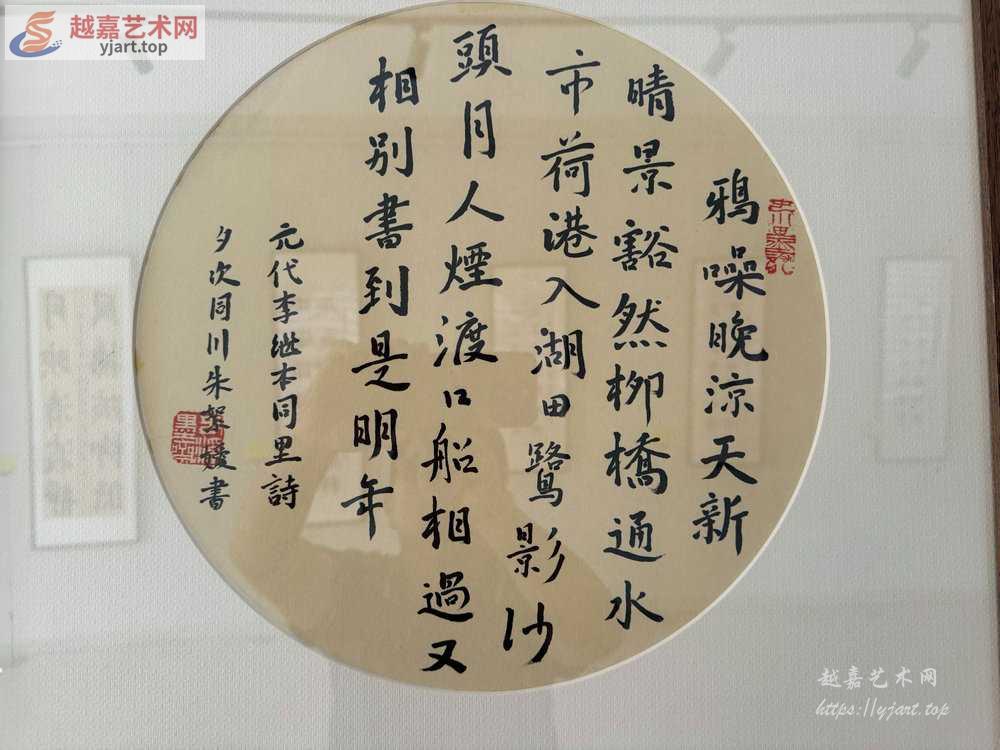 越嘉艺术网
yjart.top
鴉噪晚涼天新
晴景豁然柳橋通水
市荷港入湖田鷺影沙
頭月人煙渡口船相過又
相別書到是明年
元代李继本同里詩
夕次同川朱
書
越嘉艺术网
https://yjart.top